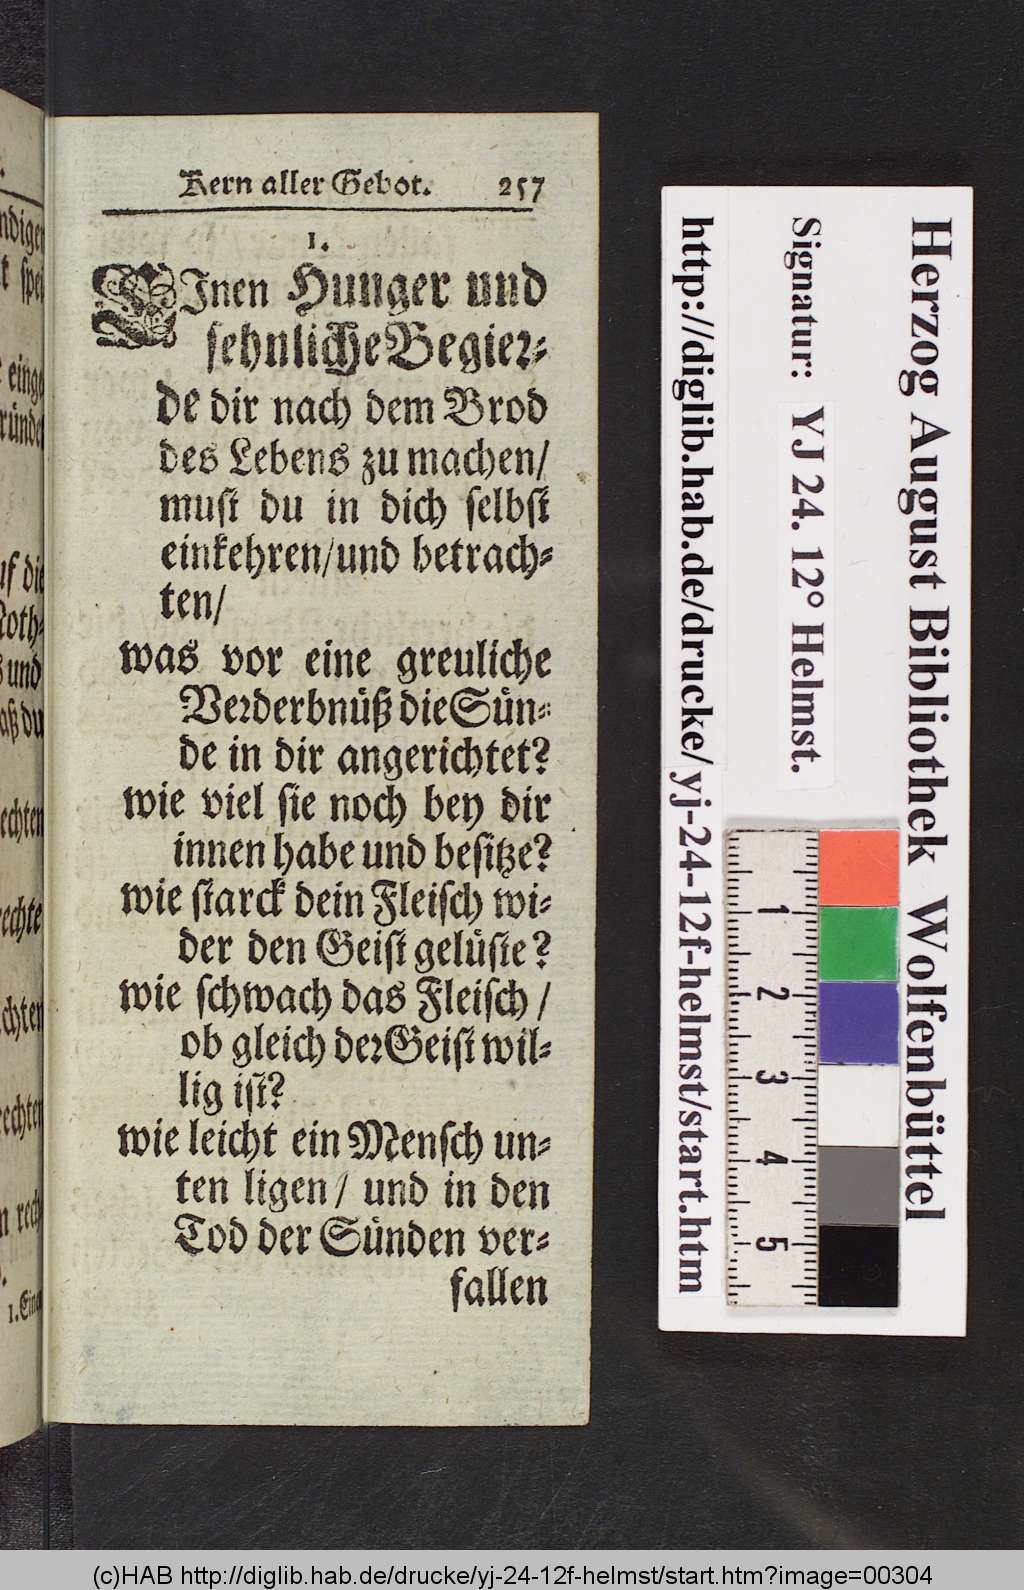 Kern aller Gebot. 257
1.
EInen Hunger und
sehnliche Begier-
de dir nach dem Brod
des Lebens zu machen/
must du in dich selbst
einkehren/und betrach-
ten/
was vor eine greuliche
Verderbnüß die Sün-
de in dir angerichtet?
wie viel sie noch bey dir
innen habe und besitze?
wie starck dein Fleisch wi-
der den Geist gelüste?
wie schwach das Fleisch /
ob gleich der Geist wil-
lig ist?
wie leicht ein Mensch un-
ten ligen / und in den
Tod der Sünden ver-
fallen
ndiger
t spei
einge
ründe
uf die
Noth-
und
aß du
echten
echte
chten
echten
n rech
1. Eine
Herzog August Bibliothek Wolfenbüttel
Signatur: YJ 24. 12° Helmst.
http://diglib.hab.de/drucke/yj-24-12f-helmst/start.htm
1
2
3
4
5
(c)HAB http://diglib.hab.de/drucke/yj-24-12f-helmst/start.htm?image=00304